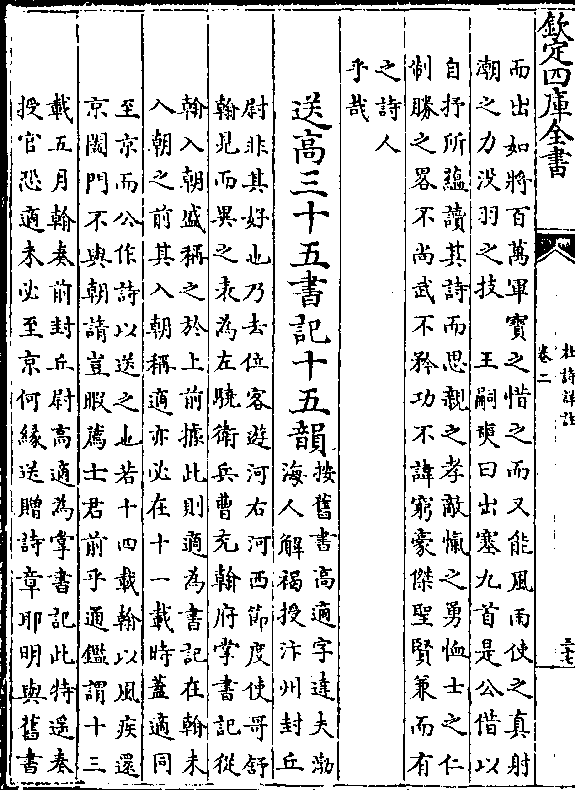 欽定四庫全書
杜詩詳註
卷二
三十七
而出如將百萬軍寶之惜之而又能風雨使之真射
潮之力没羽之技　王嗣奭曰出塞九首是公借以
自抒所蘊讀其詩而思親之孝敵愾之勇恤士之仁
制勝之畧不尚武不矜功不諱窮豪傑聖賢兼而有
之詩人
乎哉
送高三十五書記十五韻
按舊書高適字達夫渤
海人解褐授汴州封丘
尉非其好也乃去位客遊河右河西節度使哥舒
翰見而異之表為左驍衛兵曹充翰府掌書記從
翰入朝盛稱之於上前據此則適為書記在翰未
入朝之前其入朝稱適亦必在十一載時蓋適同
至京而公作詩以送之也若十四載翰以風疾還
京闔門不與朝請豈暇薦士君前乎通鑑謂十三
載五月翰奏前封丘尉高適為掌書記此特遥奏
授官恐適未必至京何緣送贈詩章耶明與舊書